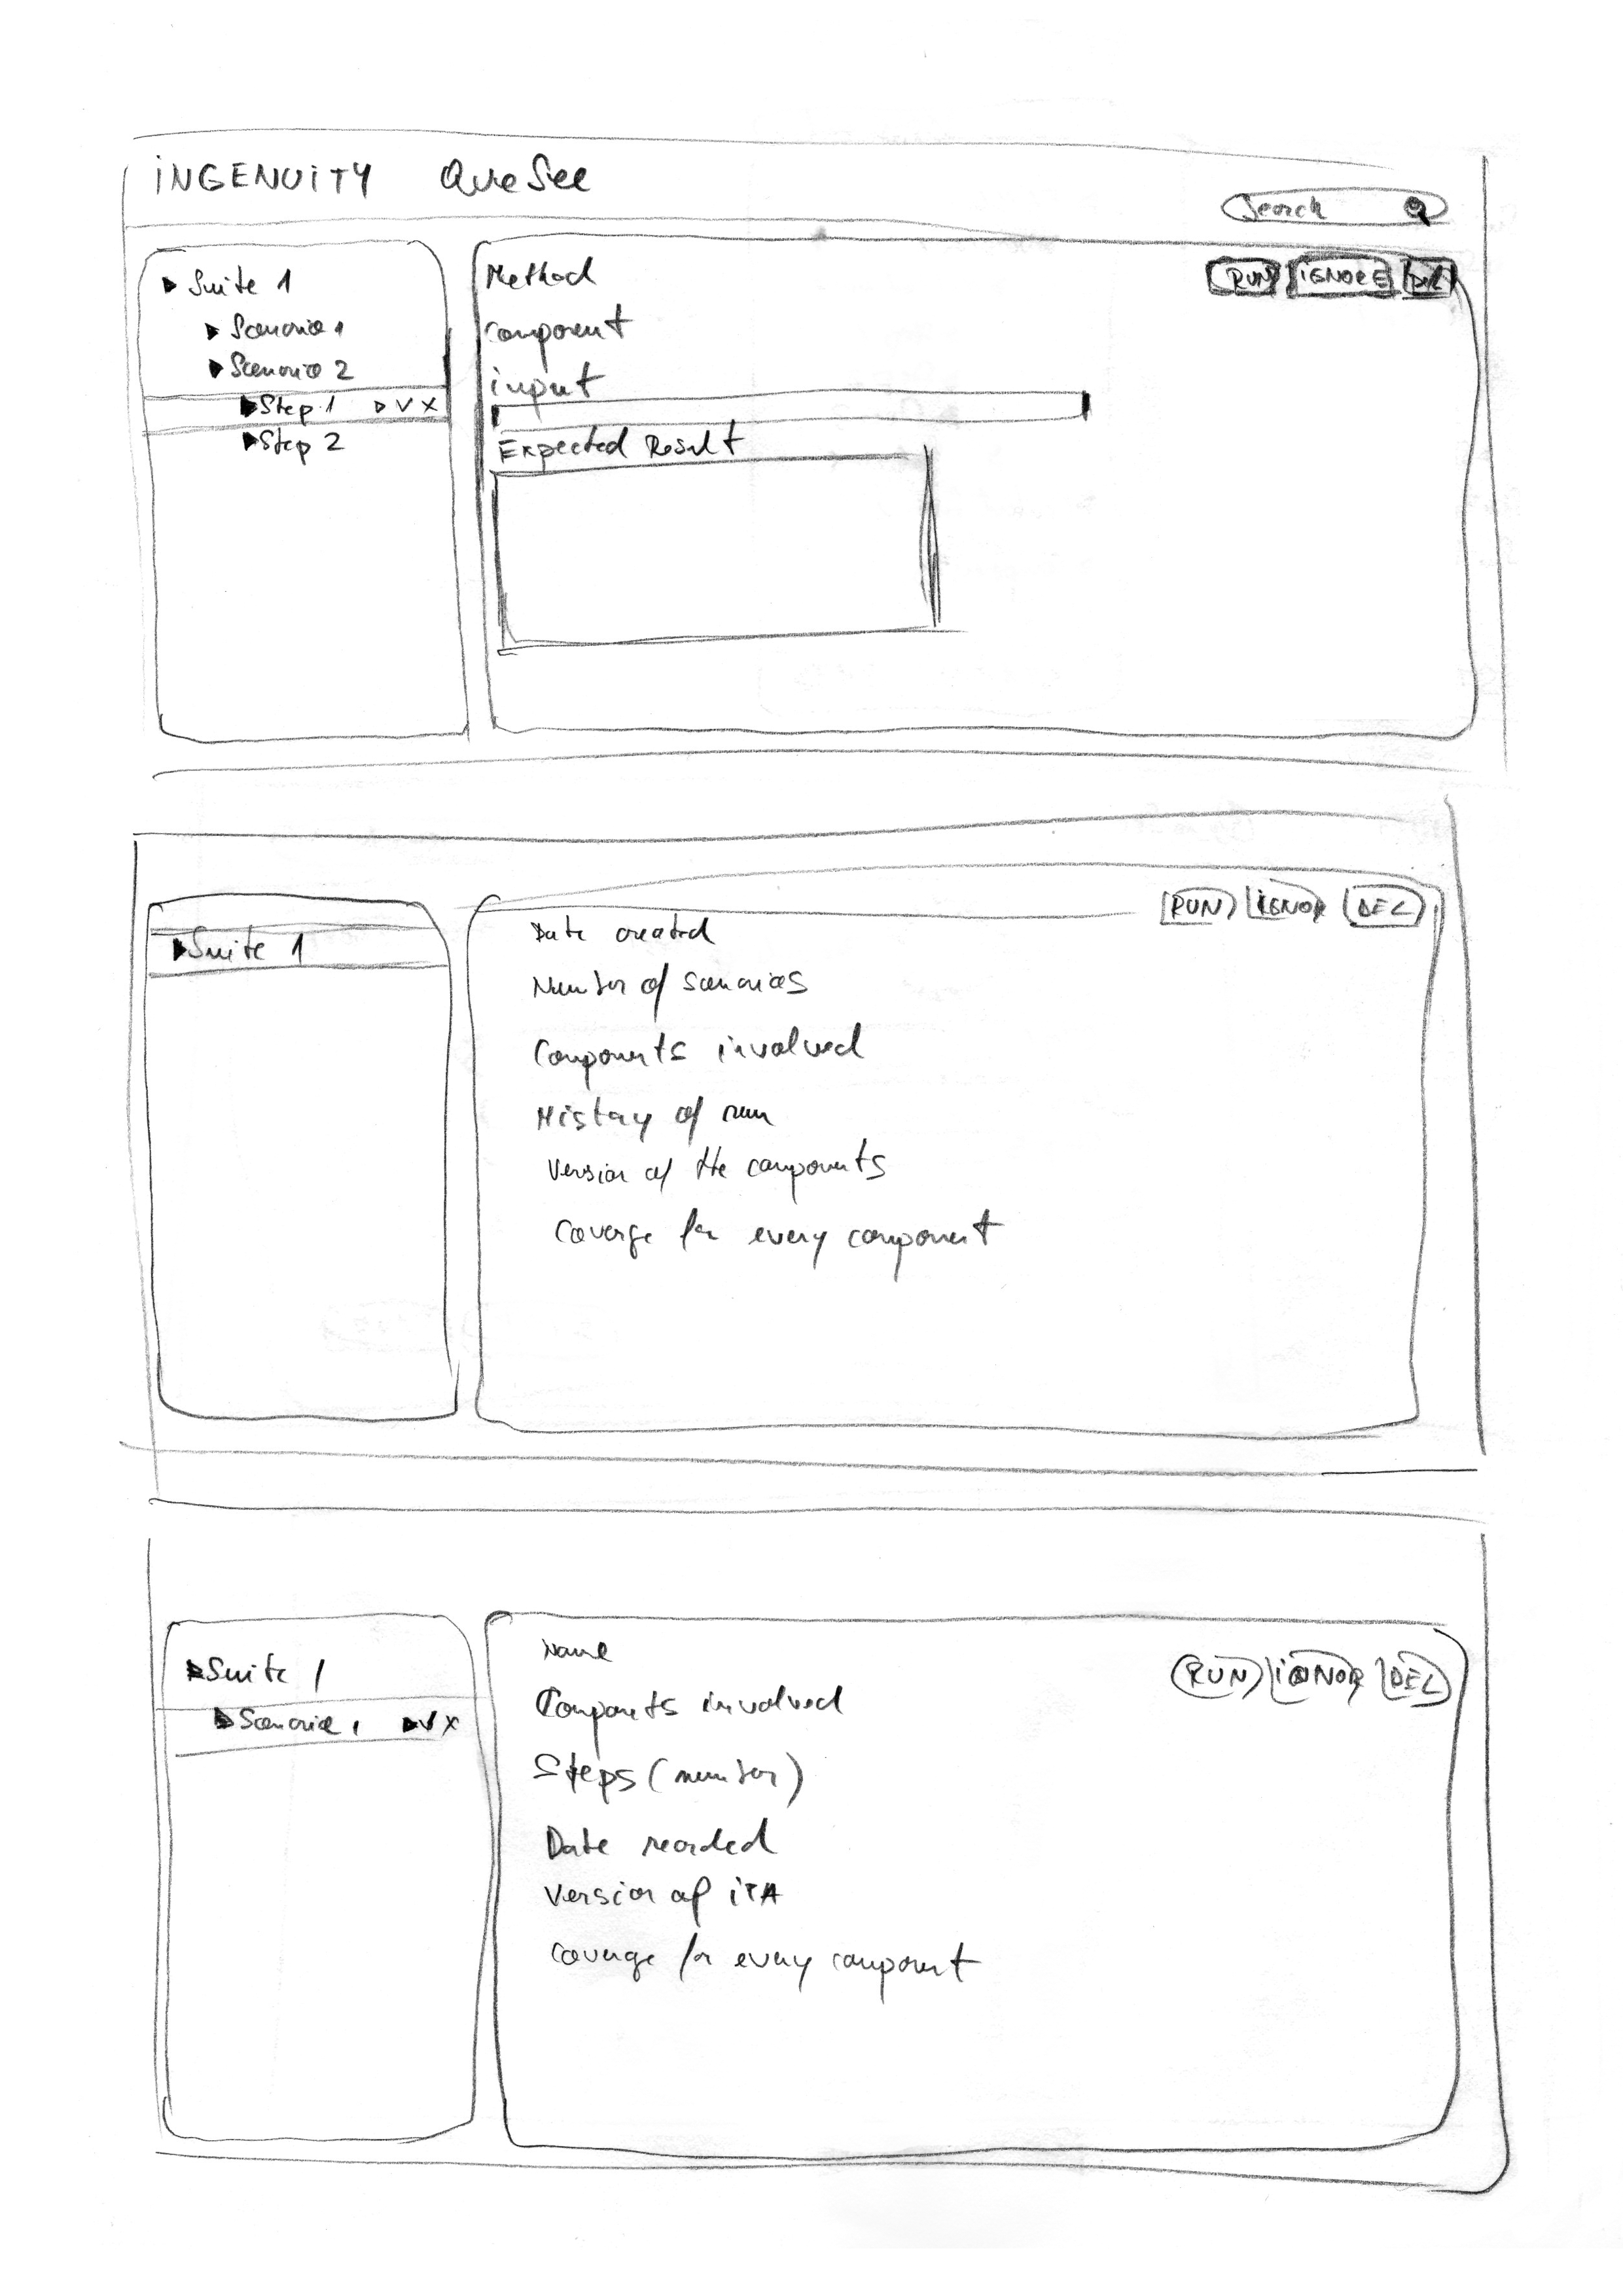 iNGENUiTY QueSee
Search
Suite 1
Scenario 1
Scenario 2
Step 1 V X
Step 2
Method
component
input
Expected Result
RUN iGNORE DEL
Suite 1
Date created
Number of scenarios
Components involved
History of run
Version of the components
Coverge for every component
RUN iGNOR DEL
Suite 1
Scenario 1 V X
Name
Componts involved
Steps (number)
Date recorded
Version of iTA
Coverge for every component
RUN iGNOR DEL